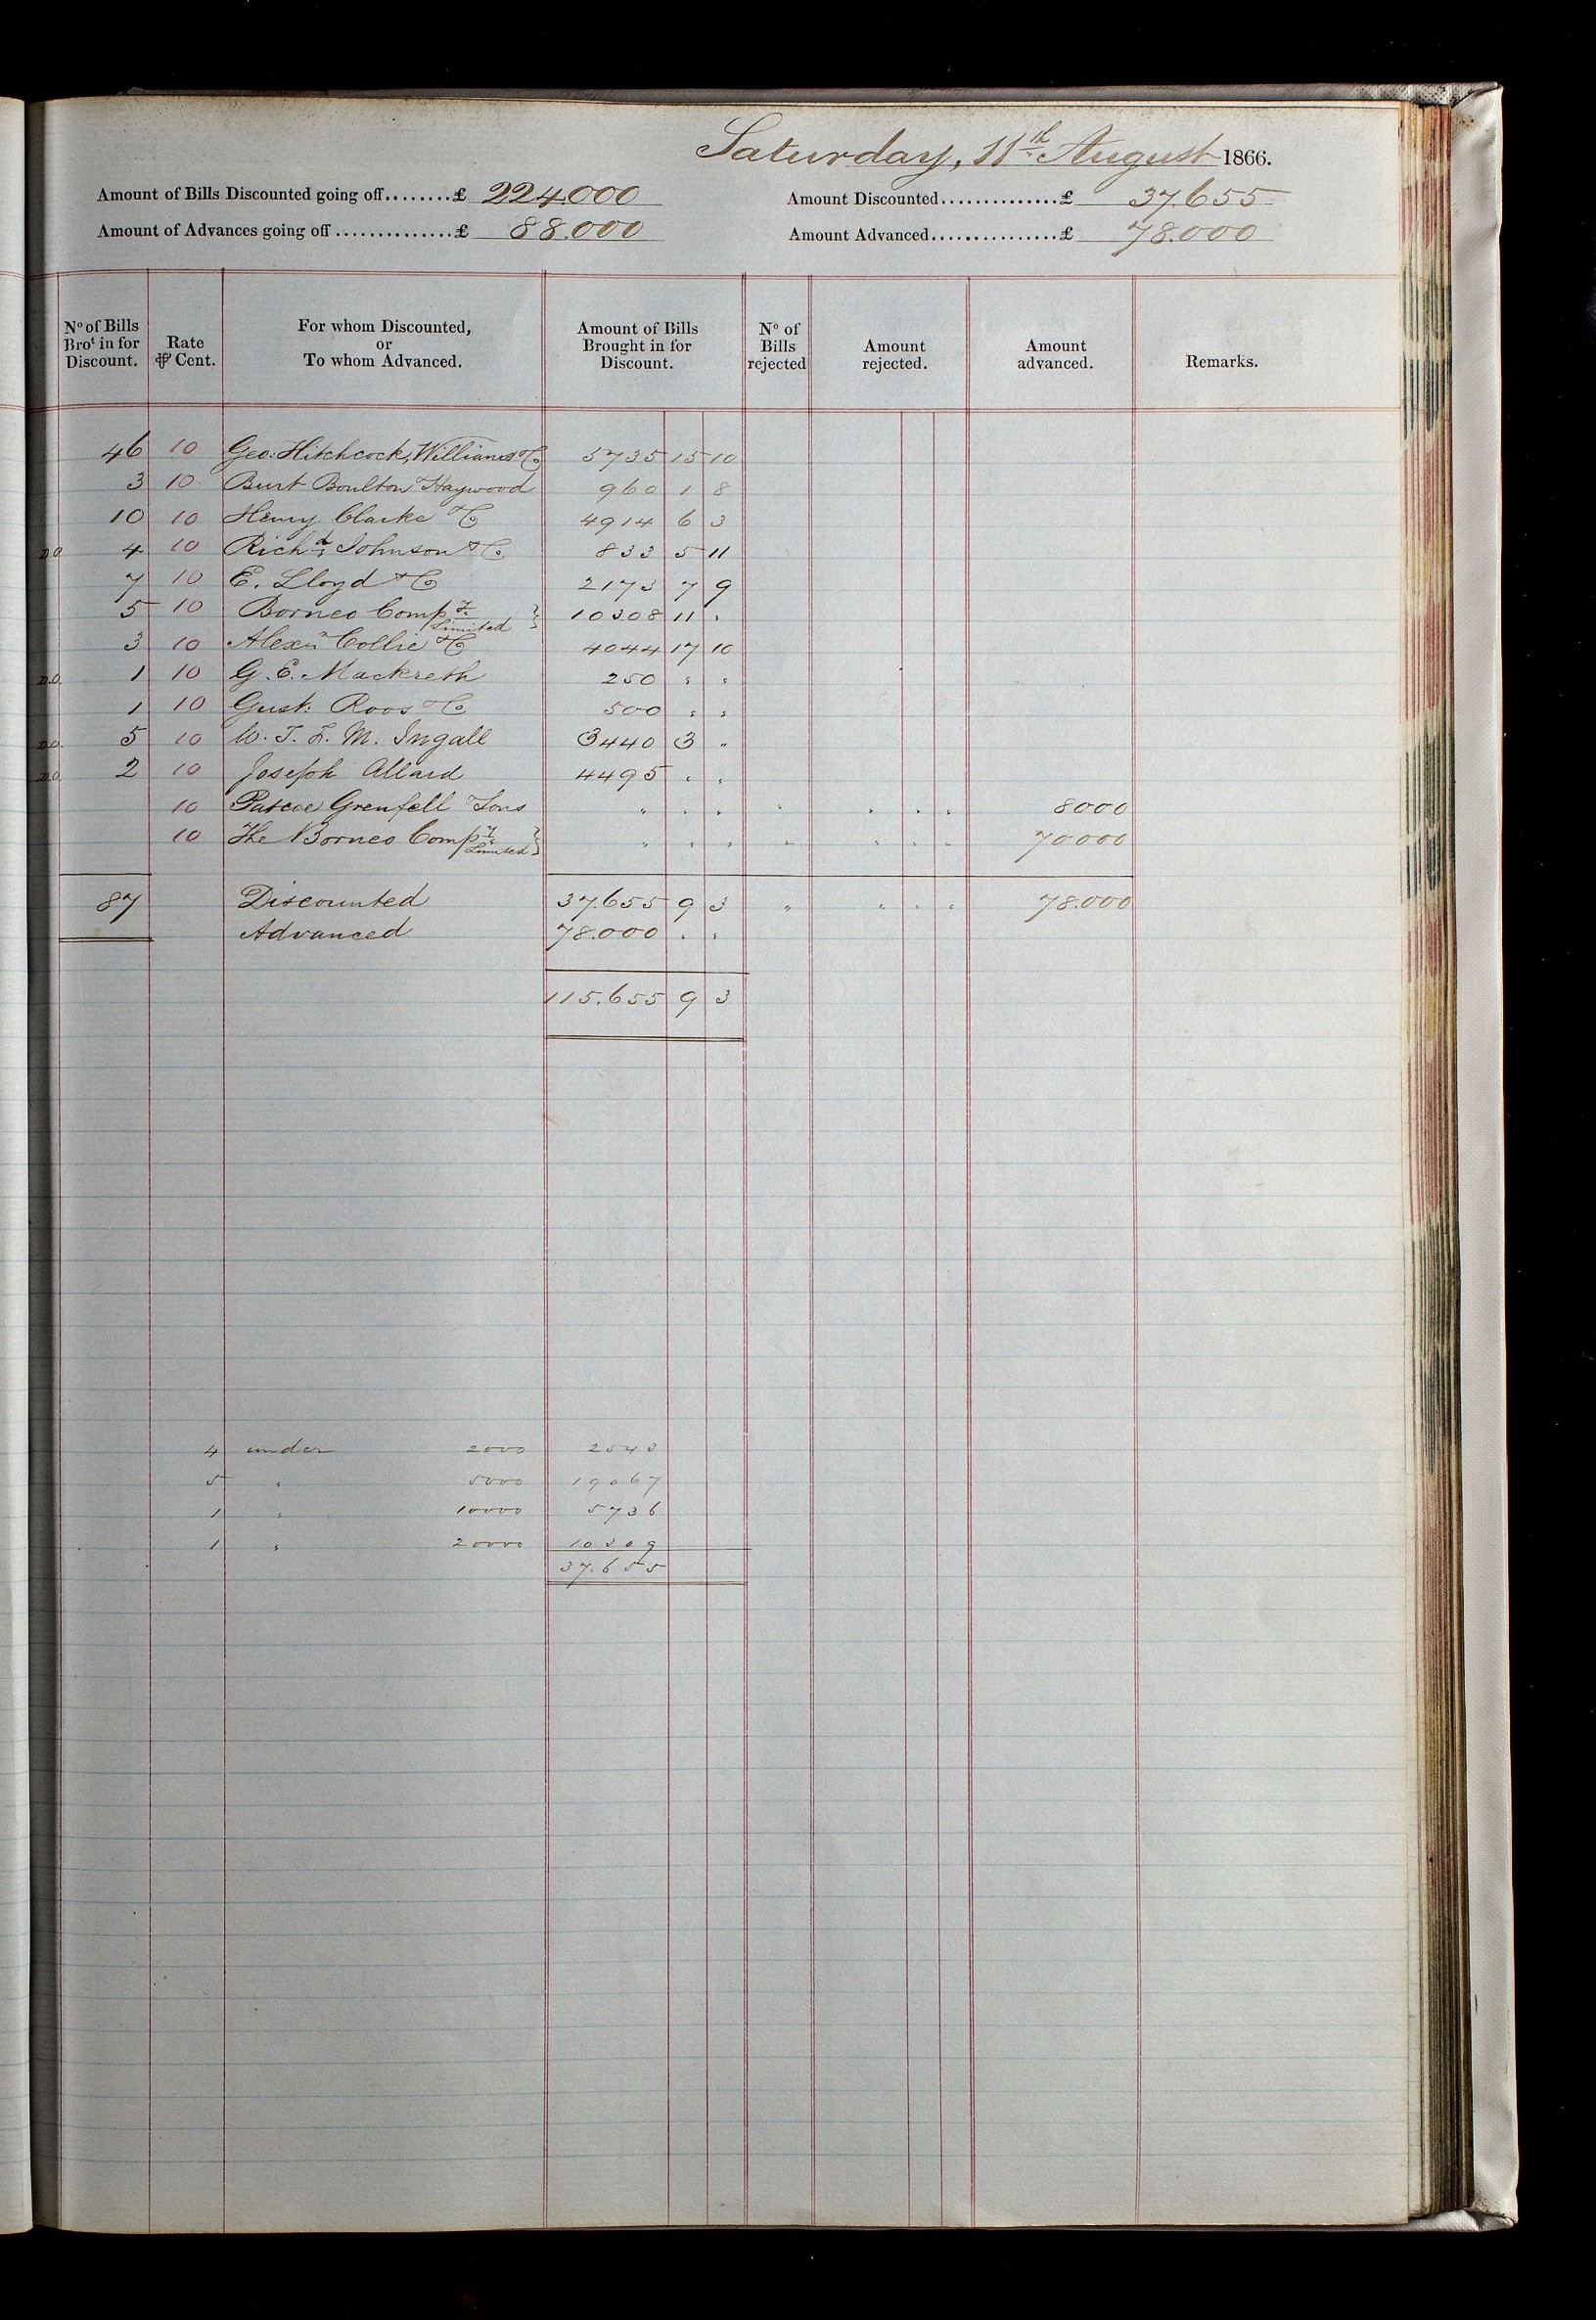 Saturday, 11th August 1866.
Amount of Bills Discounted going off........£ 224.000 Amount Discounted..............£ 37.655
Amount of Advances going off..............£ 88.000 Amount Advanced................£ 78.000
No of Bills Brot in for Discount. Rate ⅌ Cent. For whom Discounted, or To whom Advanced. Amount of Bills Brought in for Discount. No of Bills rejected Amount rejected. Amount advanced. Remarks.
46 10 Geo: Hitchcock, Williams & Co 5735 15 10
3 10 Burt Boulton & Haywood 960 1 8
10 10 Henry Clarke & Co 4914 6 3
D.O. 4 10 Richd Johnson & Co 833 5 11
7 10 E. Lloyd & Co 2173 7 9
5 10 Borneo Compy Limited } 10308 11 "
3 10 Alexr Collie & Co 4044 17 10
D.O. 1 10 G. E. Mackreth 250 " "
1 10 Gust: Roos & Co 500 " "
D.O. 5 10 W. T. & M. Ingall 3440 3 "
D.O. 2 10 Joseph Allard 4495 " "
10 Pascoe Grenfell & Sons " " " " " " " 8000
10 The Borneo Compy Limited } " " " " " " " 70000
87 Discounted 37.655 9 3 " " " " 78.000
Advanced 78.000 " "
115.655 9 3
4 under 2000 2543
5 " 5000 19067
1 " 10000 5736
1 " 20000 10309
37.655